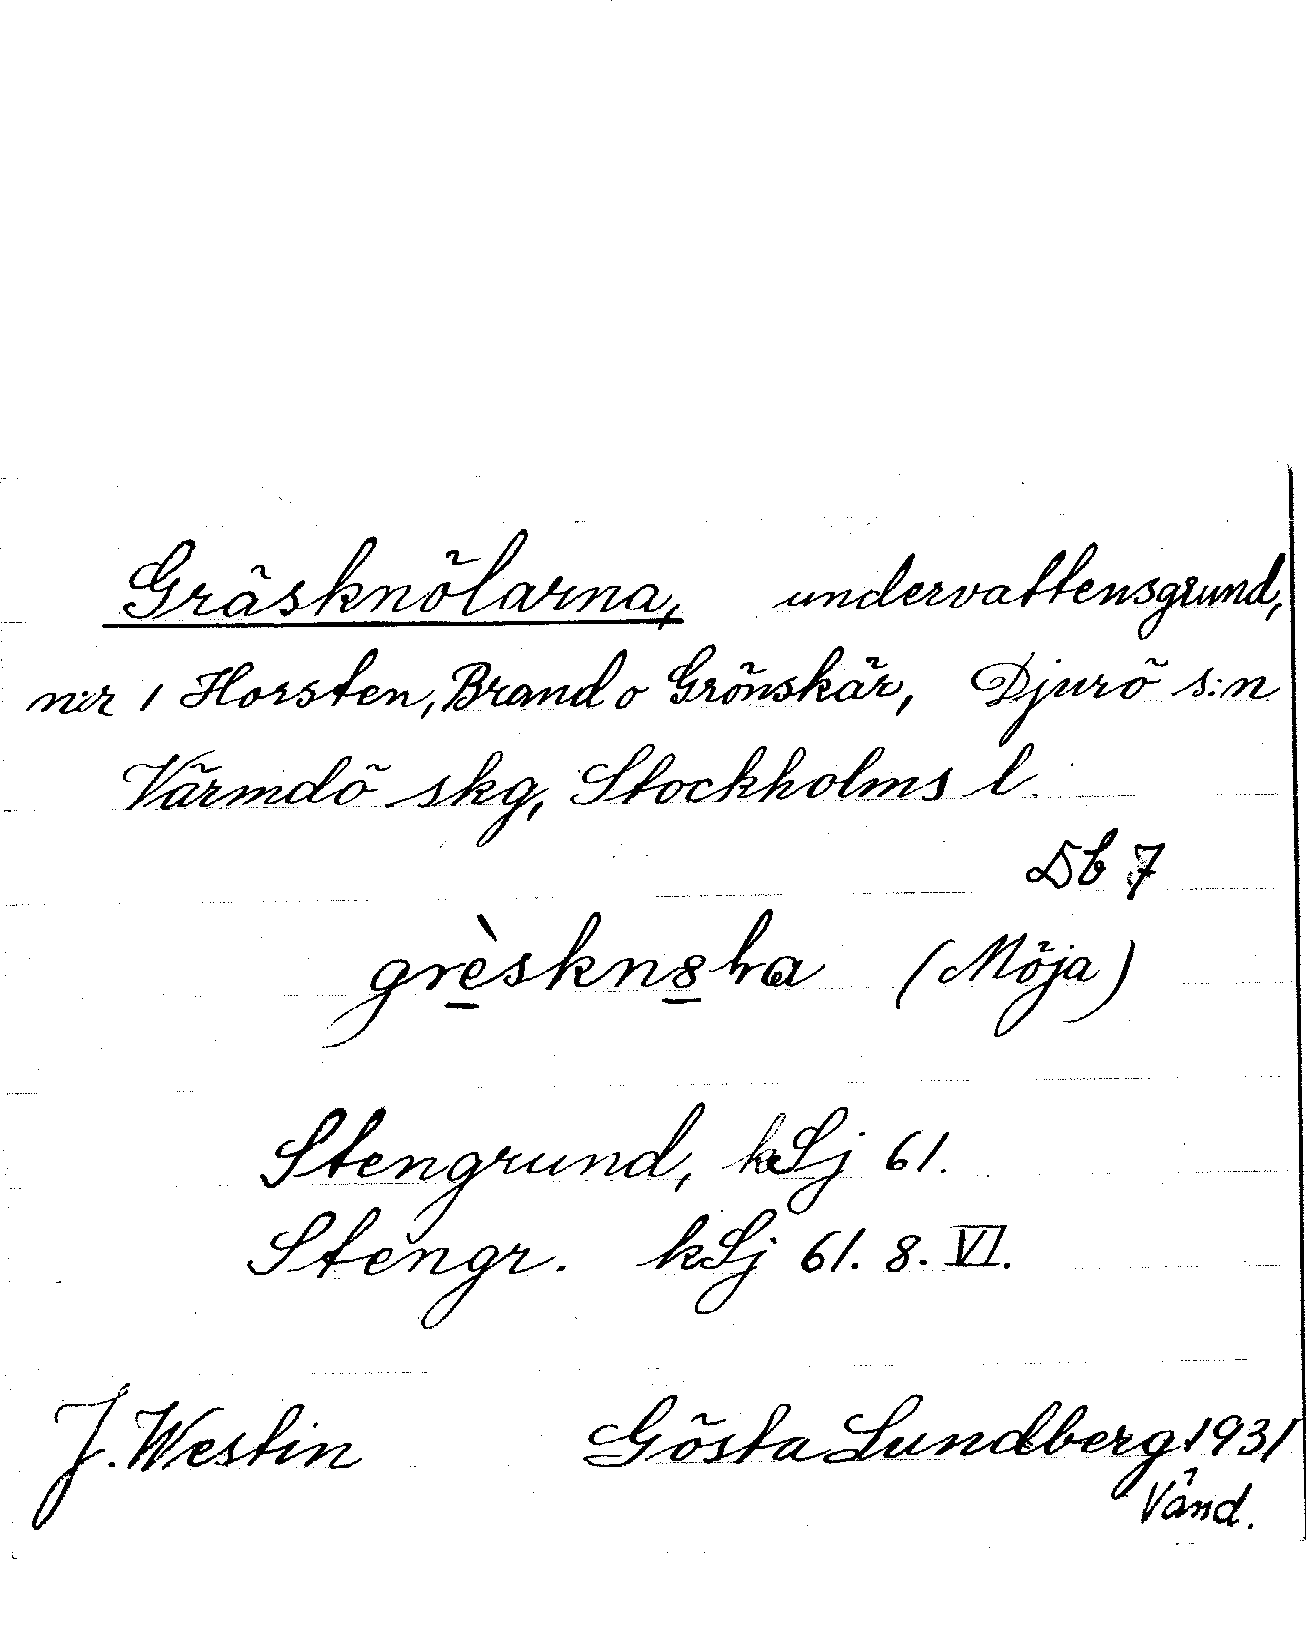 Gräsknölarna, undervattensgrund,
n:r 1 Horsten, Brand o Grönskär, Djurö s:n
Värmdö skg, Stockholms l.
Db 7
(Möja)
Stengrund, kSj 61.
Stengr. kSj 61. 8. VI.
J. Westin Gösta Lundberg 1931
Vänd.